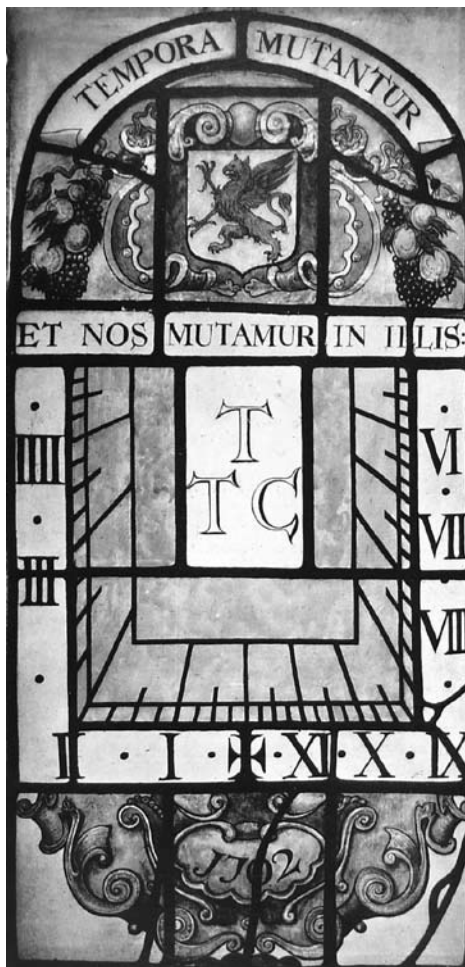 TEMPORA MUTANTUR
ET NOS MUTAMUR IN ILLIS:
T
T C
IIII
III
VI
VII
VIII
II · I · ✠ · XI · X · IX
1702